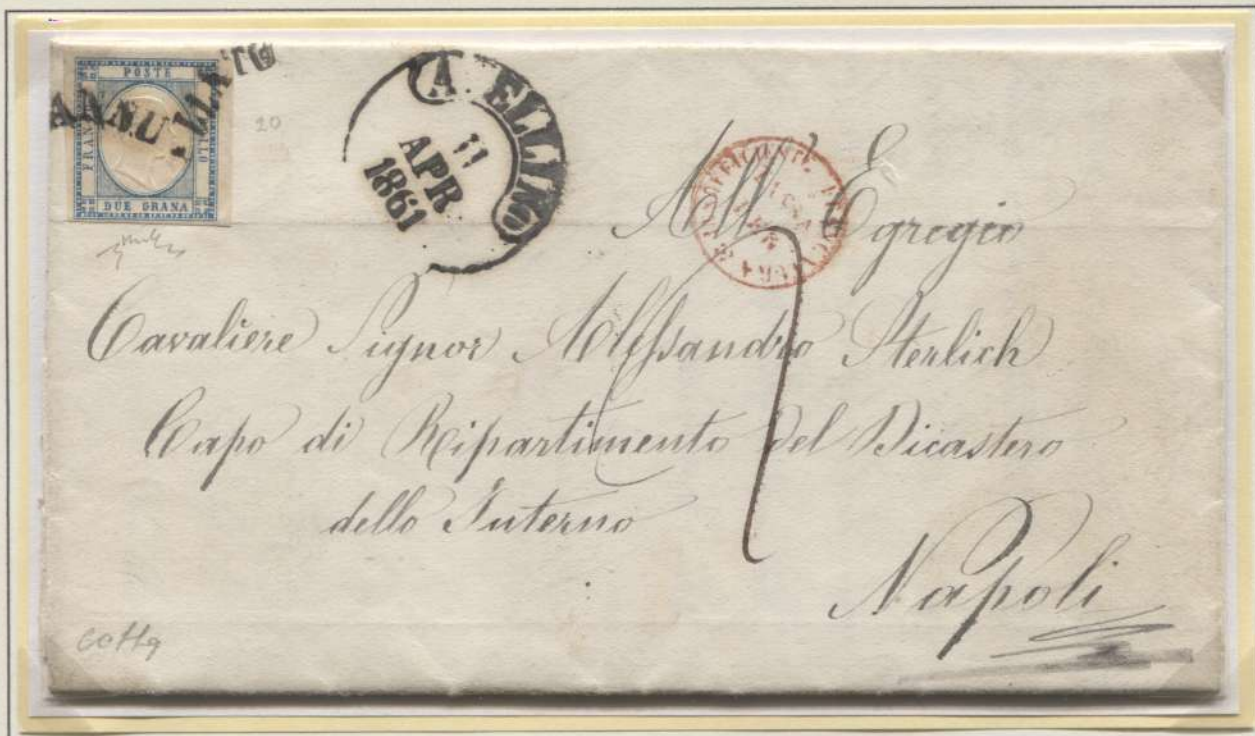 POSTE
FRAN LLO
DUE GRANA
ANNU
20
A. ELLINO
11
APR
1861
All' Egregio
Cavaliere Signor Alessandro Sterlich
Capo di Ripartimento del Dicastero
dello Interno
Napoli